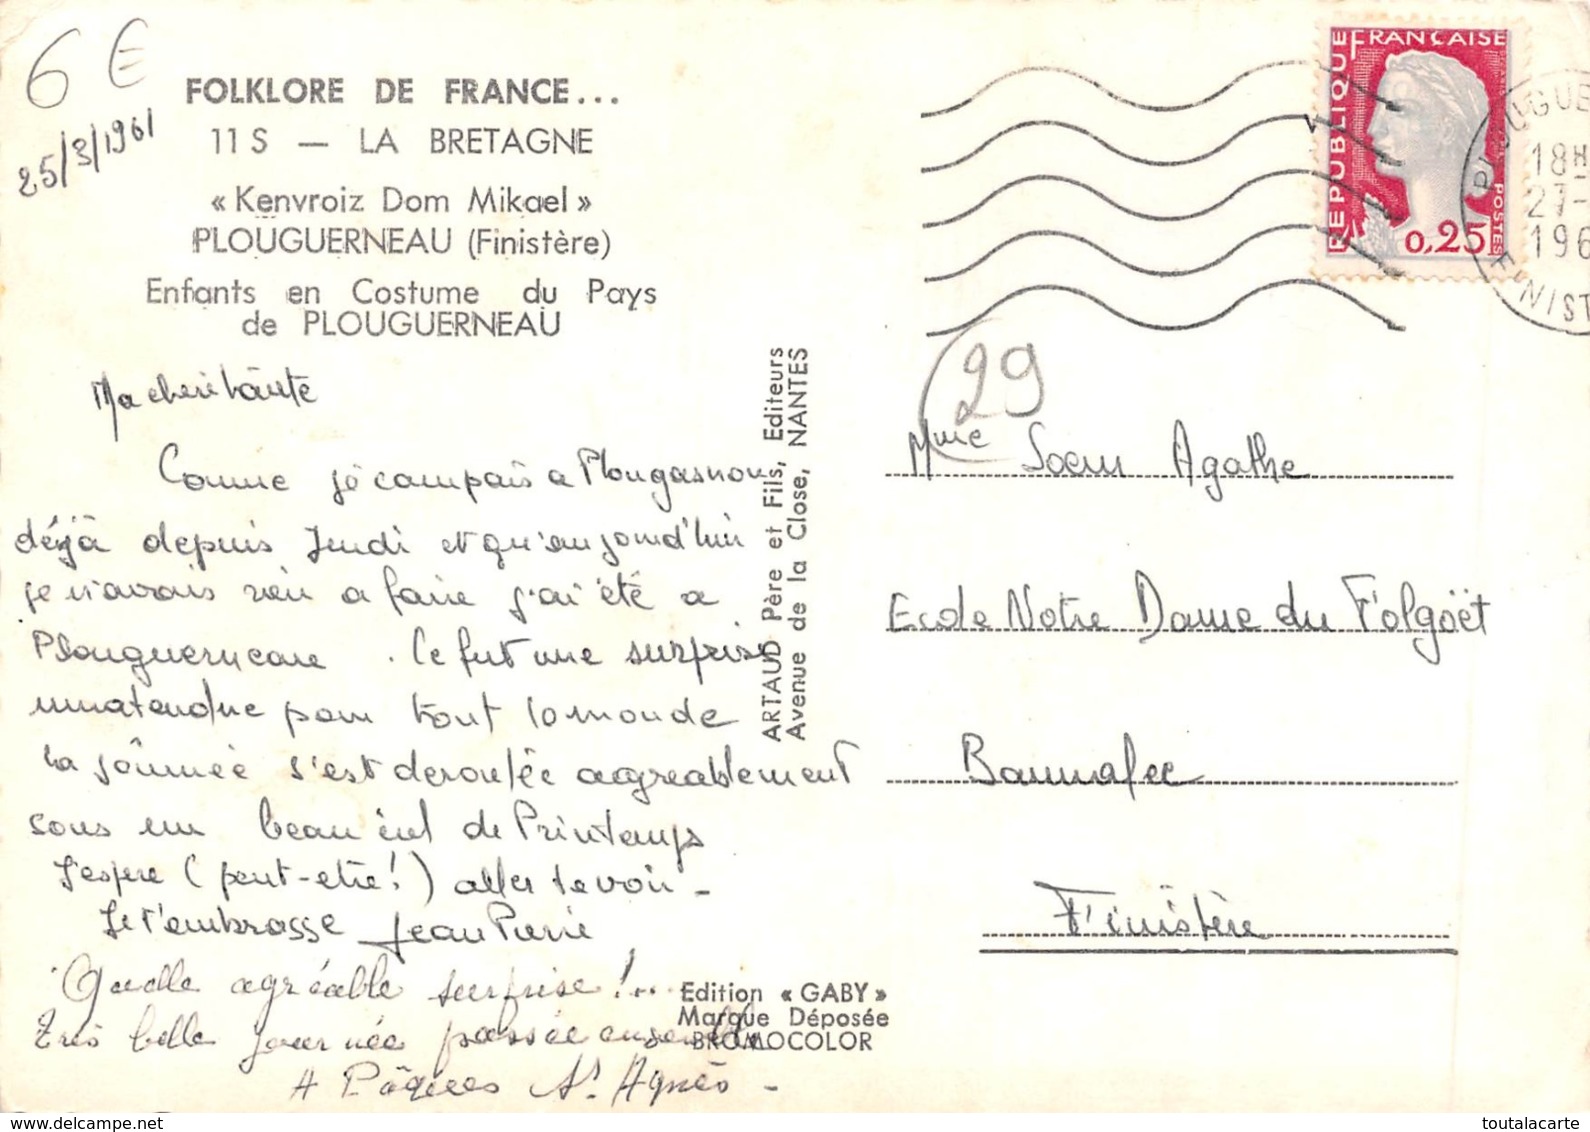 6 €
25/3/1961
FOLKLORE DE FRANCE...
11 S — LA BRETAGNE
« Kenvroiz Dom Mikael »
PLOUGUERNEAU (Finistère)
Enfants en Costume du Pays
de PLOUGUERNEAU
Ma cherie tante
Comme je campais a Plougasnou
déjà depuis Jeudi et qu'aujourd'hui
je n'avais rien a faire j'ai été a
Plouguerneau . Ce fut une surprise
innatendue pour tout le monde
la journée s'est deroulée agreablement
sous un beau ciel de Printemps
J'espere (peut-etre!) aller te voir -
Je t'embrasse Jean Pierre
Quelle agréable surprise !...
Très belle journée passée ensemble
A Pâques Sr Agnès -
ARTAUD Père et Fils, Editeurs
Avenue de la Close, NANTES
Edition « GABY »
Marque Déposée
BROMOCOLOR
REPUBLIQUE FRANÇAISE
POSTES
0,25
PLOUGUE
18H
27-
196
FINIST
29
Mme Soeur Agathe
Ecole Notre Dame du Folgoët
Bannalec
Finistère
toutalacarte